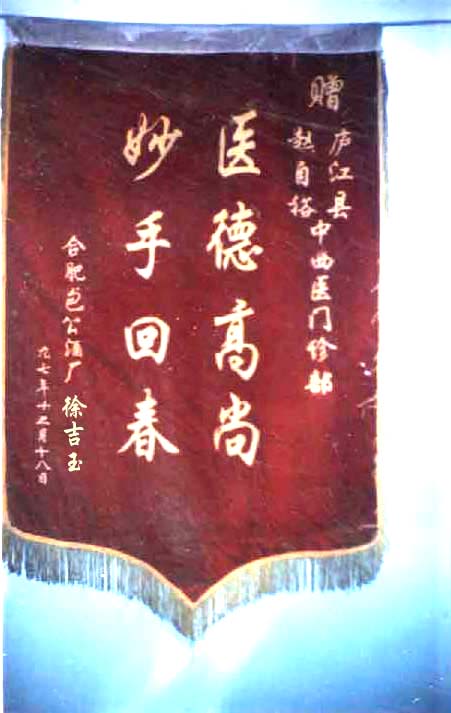 赠
庐江县
自裕
中西医门诊部
医德高尚
妙手回春
合肥包公酒厂 徐吉玉
九七年十二月十八日